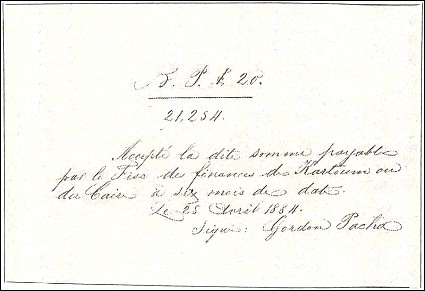 B. P. £ 20.
21,254.
Accepté la dite somme payable
par le Fisc de finances de Kartoum ou
du Caire à six mois de date.
Le 25 Avril 1884.
Signé: Gordon Pacha